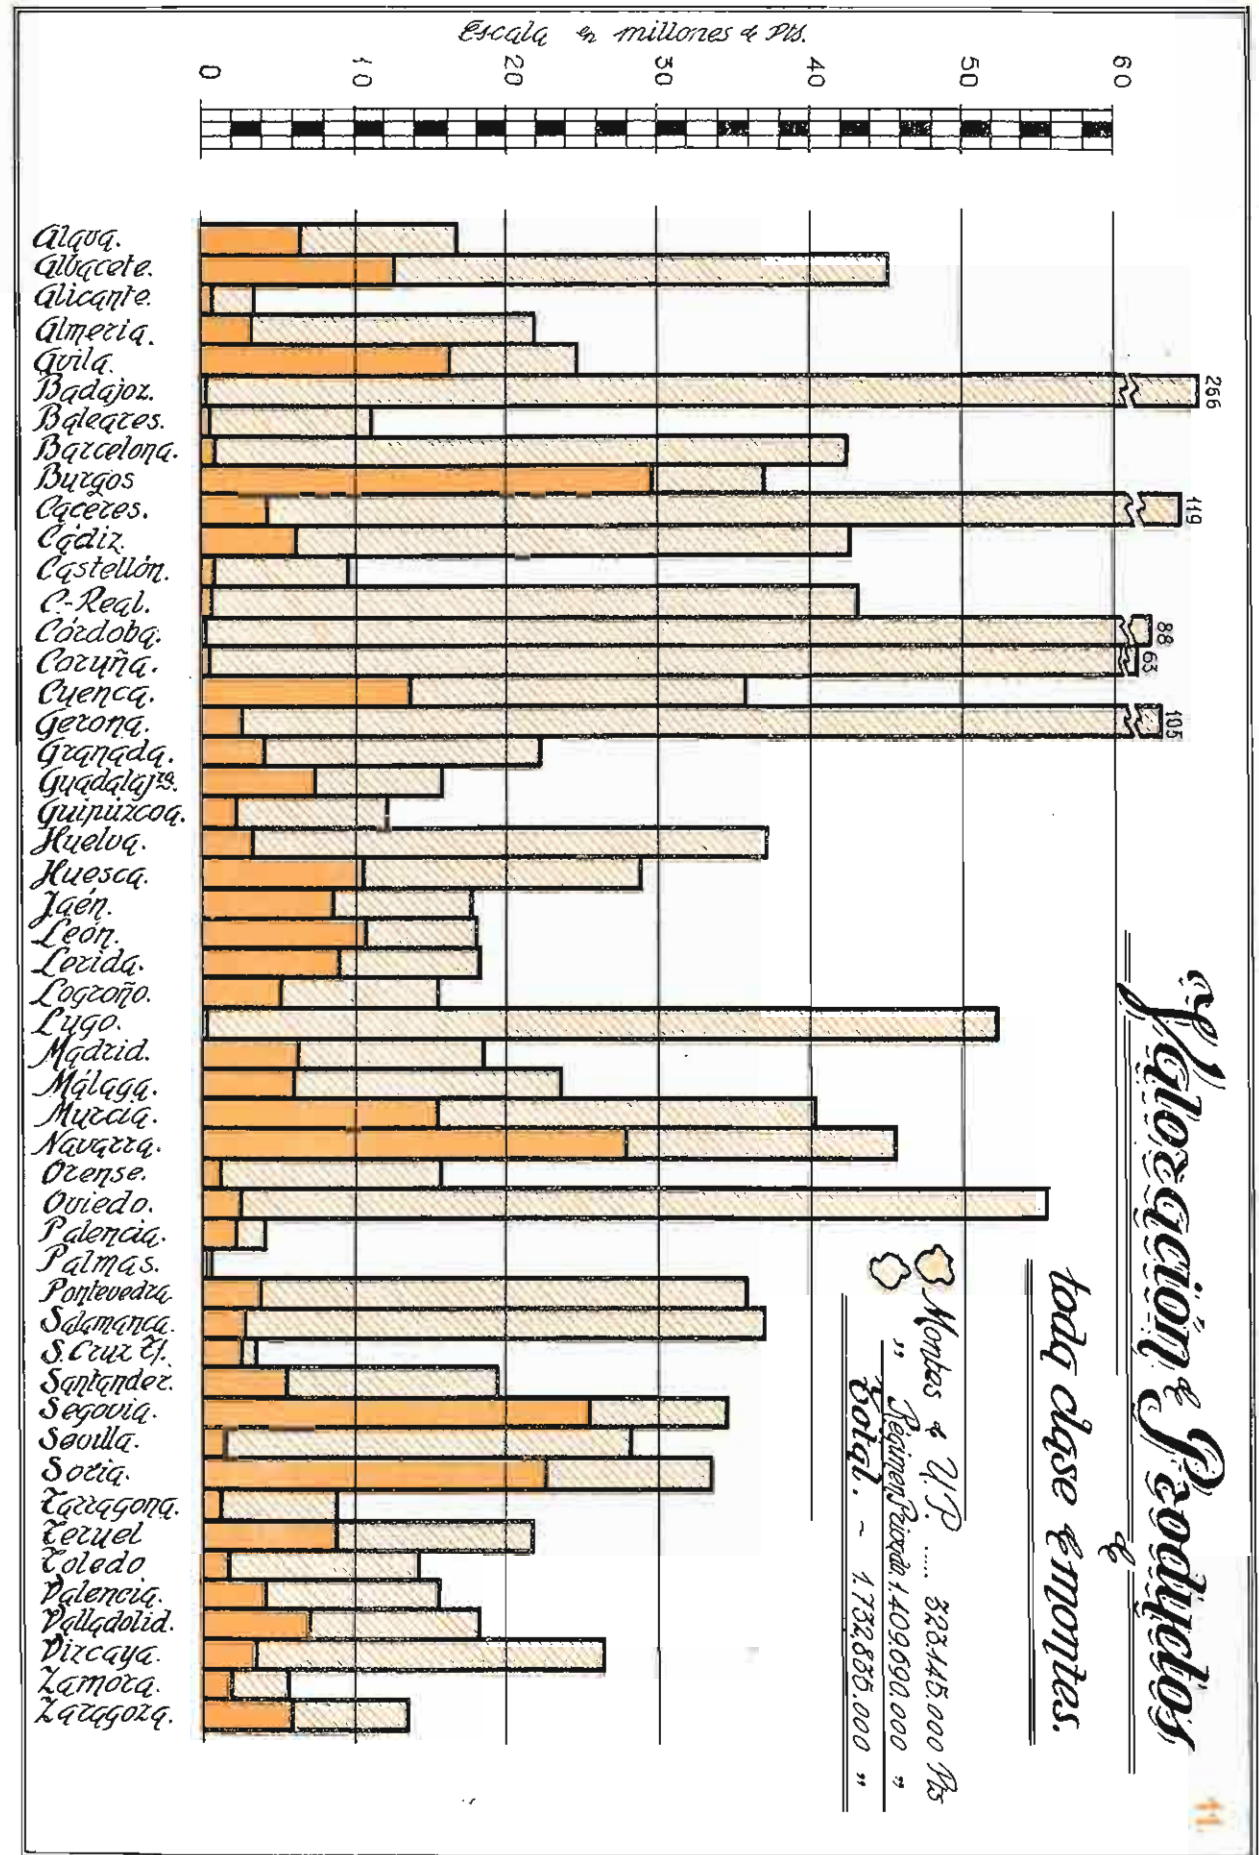 Escala en millones de Pts.
0 10 20 30 40 50 60
Alava.
Albacete.
Alicante.
Almeria.
Avila.
Badajoz. 266
Baleares.
Barcelona.
Burgos
Cáceres. 119
Cádiz.
Castellón.
C-Real.
Córdoba. 88
Coruña. 63
Cuenca.
Gerona. 105
Granada.
Guadalajra.
Guipúzcoa.
Huelva.
Huesca.
Jaén.
León.
Lerida.
Logroño.
Lugo.
Madrid.
Málaga.
Murcia.
Navarra.
Orense.
Oviedo.
Palencia.
Palmas.
Pontevedra
Salamanca.
S. Cruz Tf.
Santander.
Segovia.
Sevilla.
Soria.
Tarragona.
Teruel
Toledo
Valencia.
Valladolid.
Vizcaya.
Zamora.
Zaragoza.
Valoración de Productos
de
toda clase de montes.
Montes de U.P. .... 323.145.000 Pts
" Régimen Privado 1.409.690.000 "
Total. - 1.732.835.000 "
11.